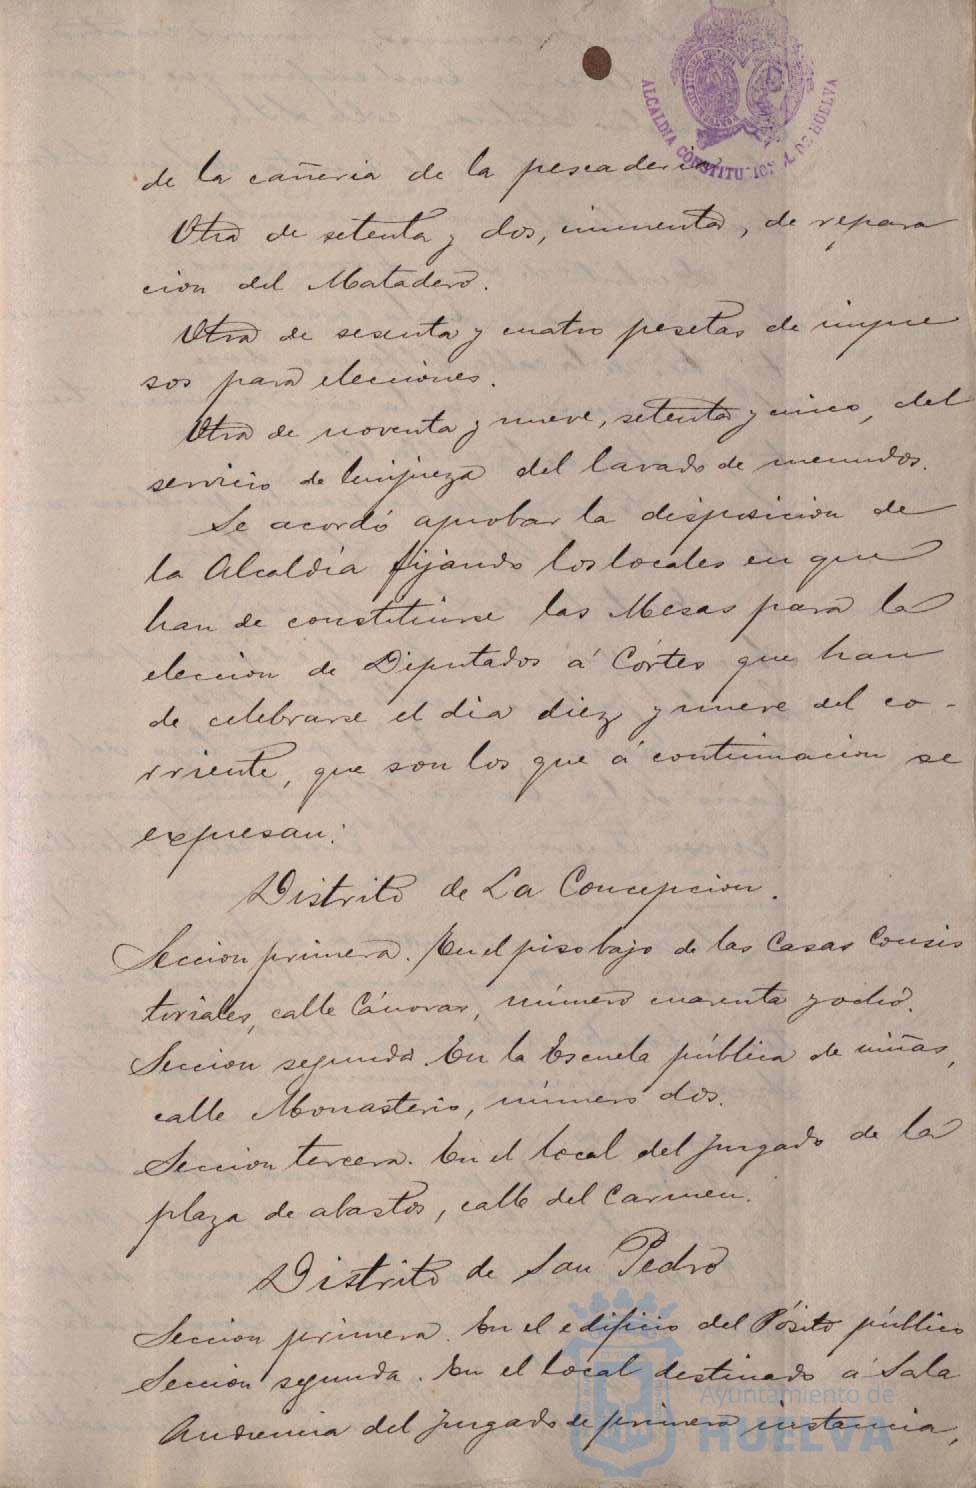 ALCALDIA CONSTITUCIONAL DE HUELVA
de la cañeria de la pescaderia
Otra de setenta y dos, cincuenta, de repara
cion del Matadero.
Otra de sesenta y cuatro pesetas de impre
sos para elecciones.
Otra de noventa y nueve, setenta y cinco, del
servicio de limpieza del lavado de menudos.
Se acordó aprobar la disposicion de
la Alcaldía fijando los locales en que
han de constituirse las Mesas para la
eleccion de Diputados á Córtes que han
de celebrarse el dia diez y nueve del co-
rriente, que son los que á continuacion se
expresan:
Distrito de La Concepcion.
Seccion primera. En el piso bajo de las Casas Consis
toriales, calle Cánovas, número cuarenta y ocho.
Seccion segunda. En la Escuela pública de niñas,
calle Monasterio, número dos.
Seccion tercera. En el local del Juzgado de la
plaza de abastos, calle del Carmen.
Distrito de San Pedro
Seccion primera. En el edificio del Pósito público
Seccion segunda. En el local destinado á Sala
Audiencia del Juzgado de primera instancia,
Ayuntamiento de
HUELVA